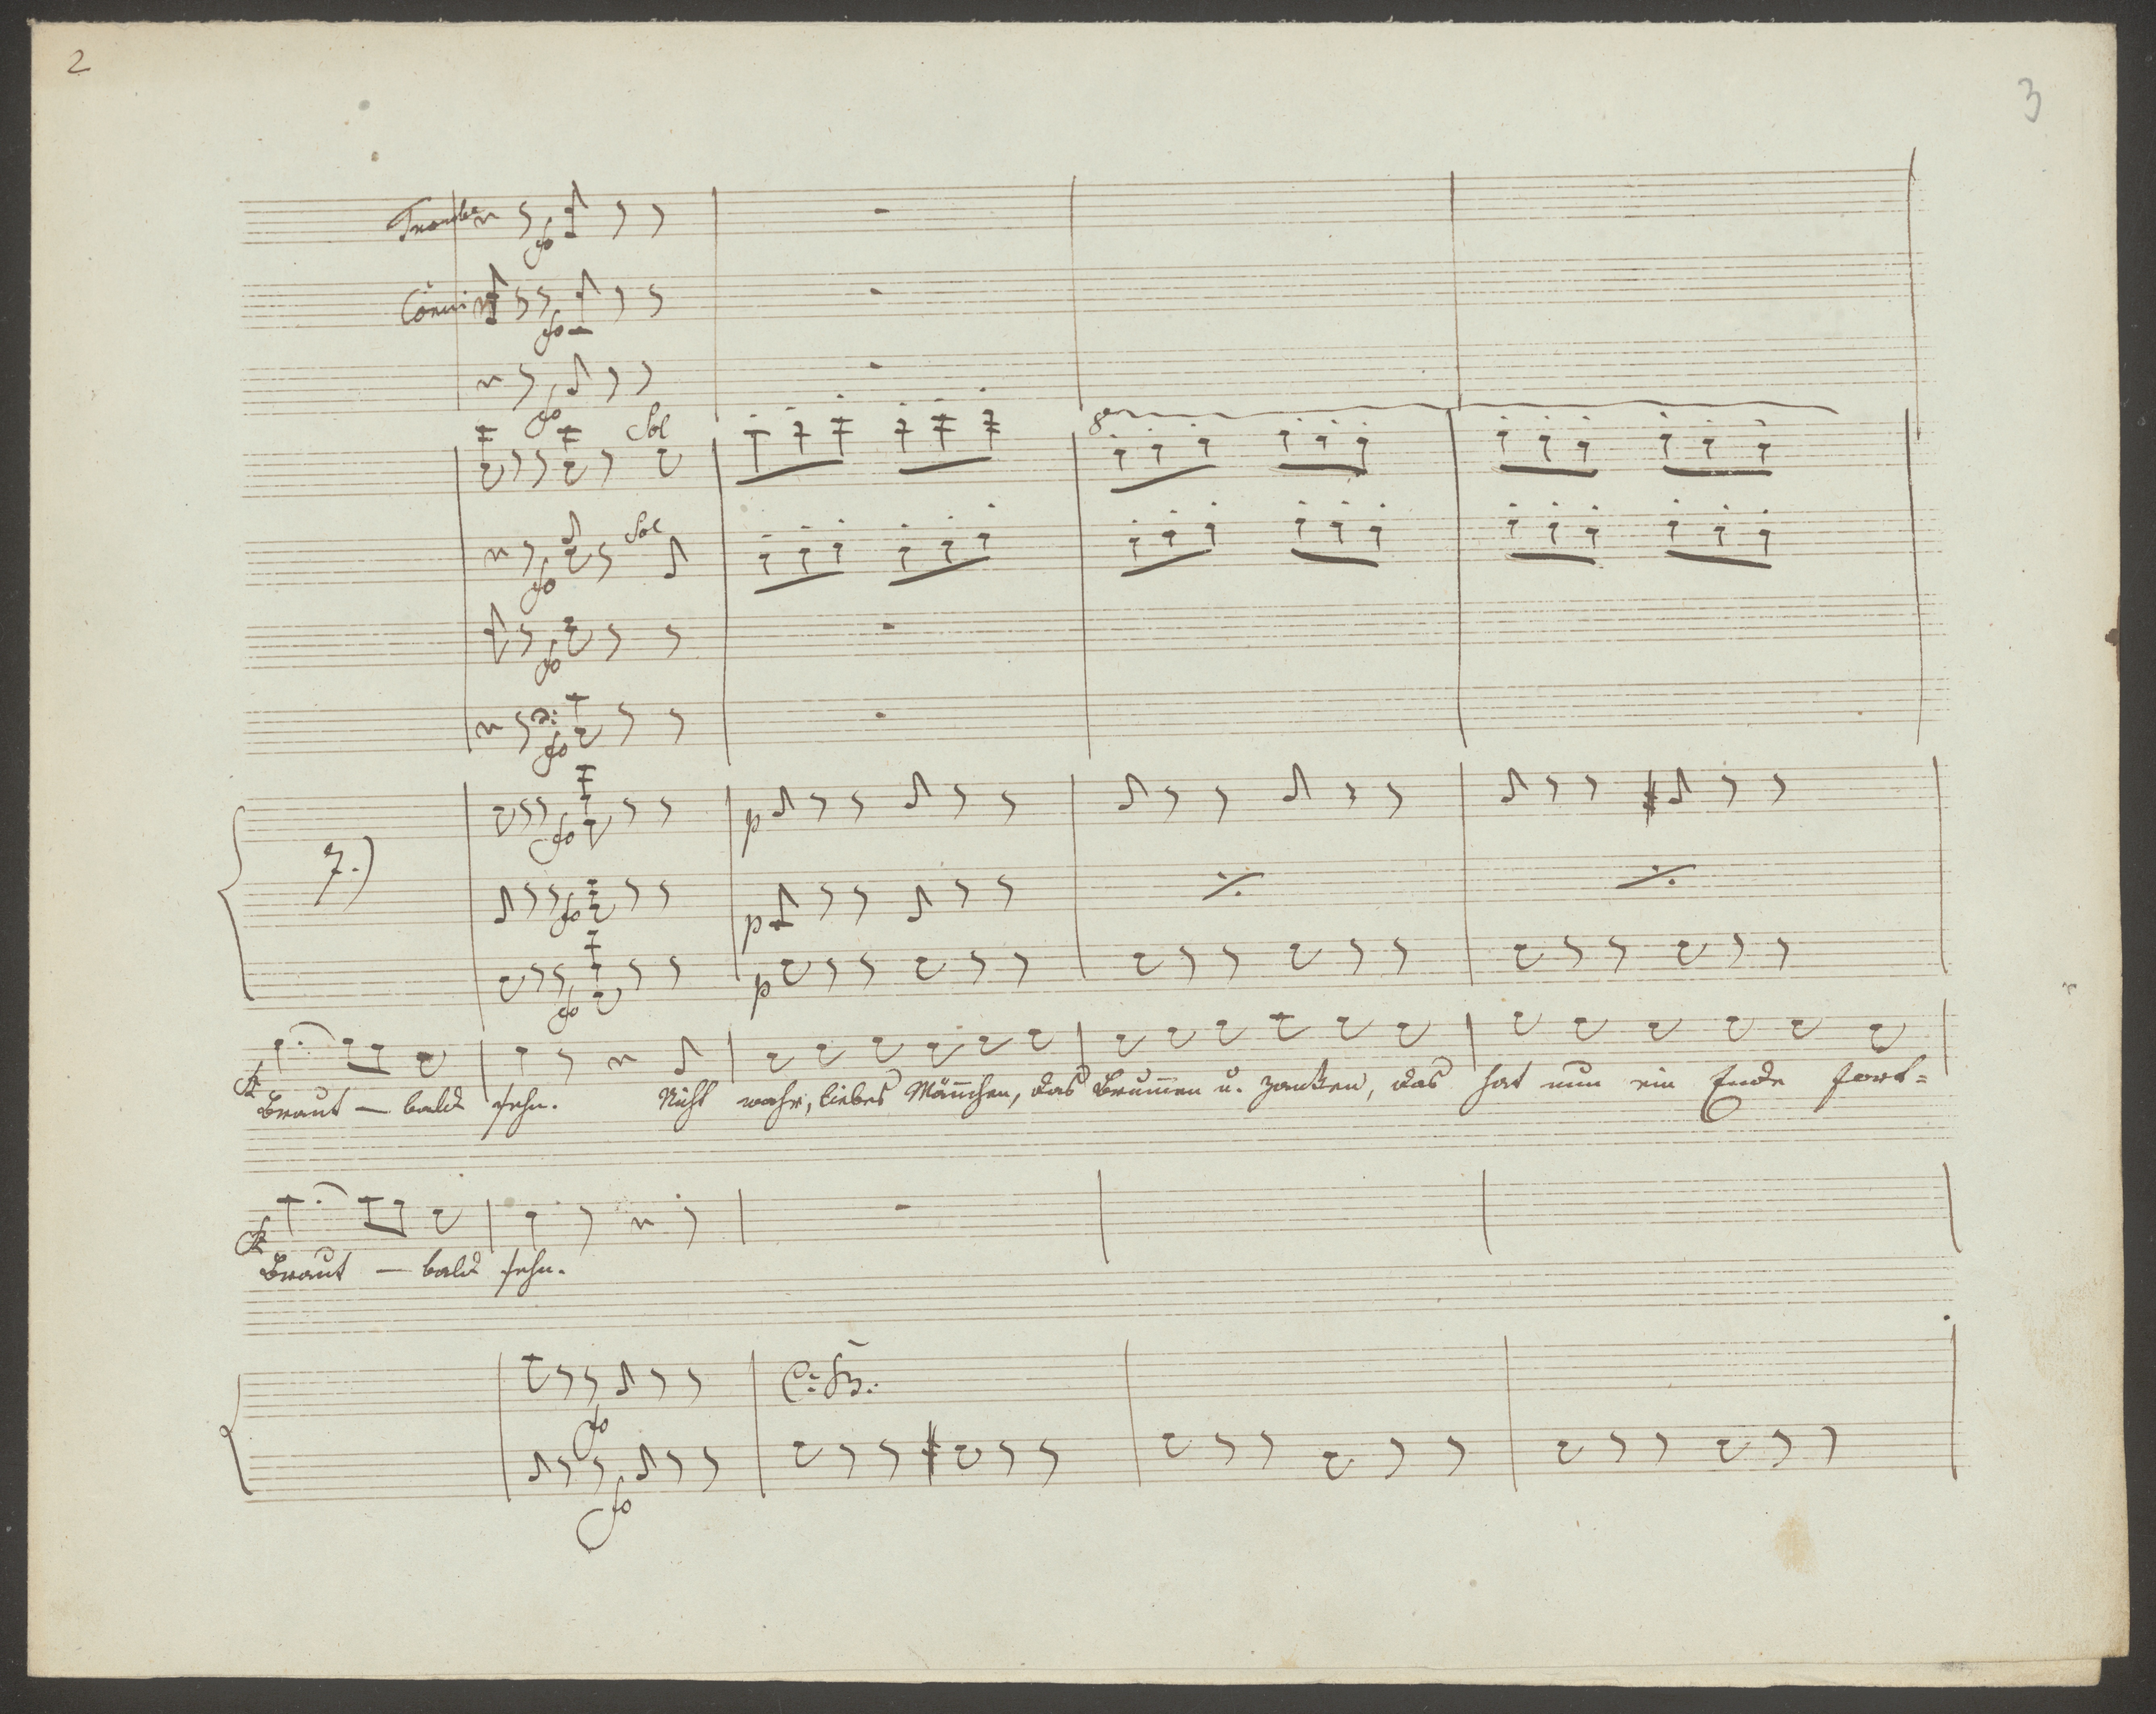 2
3
Trombe
Corni
fo
fo
fo
Sol
8
Sol
fo
fo
fo
fo
p
7.)
fo
p
fo
p
Braut — bald sehn. Nicht wahr, liebes Mañchen, das Brum̄en u. zanken, das hat nun ein Ende fort=
Braut — bald sehn.
C: B:
fo
fo